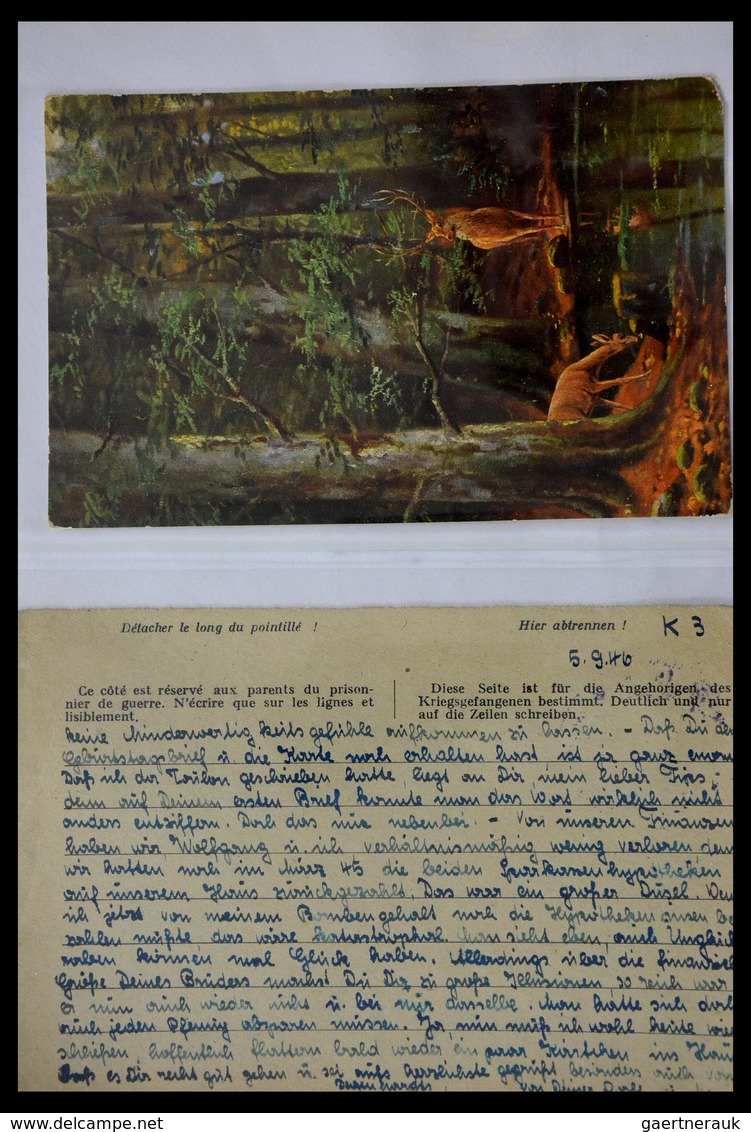 Détacher le long du pointillé !
Hier abtrennen !
K 3
5.9.46
Ce côté est réservé aux parents du prison-
nier de guerre. N'écrire que sur les lignes et
lisiblement.
Diese Seite ist für die Angehorigen des
Kriegsgefangenen bestimmt. Deutlich und nur
auf die Zeilen schreiben.
keine Minderwertigkeitsgefühle aufkommen zu lassen. - Daß Du den
Geburtstagsbrief u. die Karte noch erhalten hast, ist ja ganz
Daß ich da Toulon geschrieben hatte, liegt an Dir, mein lieber
denn auf Deinem ersten Brief konnte man das Wort wirklich nicht
anders entziffern. Doch das nur nebenbei. - Von unseren Finanzen
haben wir, Wolfgang u. ich verhältnismäßig wenig verloren denn
wir hatten noch im März 45 die beiden Sparkassenhypotheken
auf unserem Haus zurückgezahlt. Das war ein großer Dusel. Wenn
ich jetzt von meinem Bombengehalt noch die Hypotheken
zahlen müßte das wäre katastrophal. Man sieht eben, auch
raben können mal Glück haben. Allerdings über die
Größe Deines Bruders machst Du Dir zu große Illusionen, so reich war
er nun auch wieder nicht u. bei mir dasselbe. Man hatte sich doch
auch jeden Pfennig absparen müssen. Ja, nun muß ich wohl heute
schließen, hoffentlich flattern bald wieder ein paar Kärtchen ins Haus
Laß es Dir recht gut gehen u. sei aufs herzlichste gegrüßt besonders auch von
von Deiner
gaertnerauk